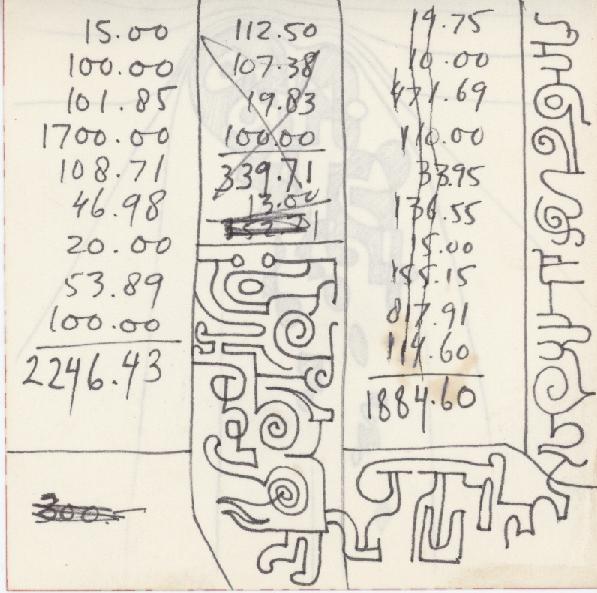 15.00
100.00
101.85
1700.00
108.71
46.98
20.00
53.89
100.00
2246.43
300.
112.50
107.38
19.83
100.00
339.71
13.00
352.71
19.75
10.00
471.69
110.00
33.95
136.55
15.00
155.15
817.91
114.60
1884.60